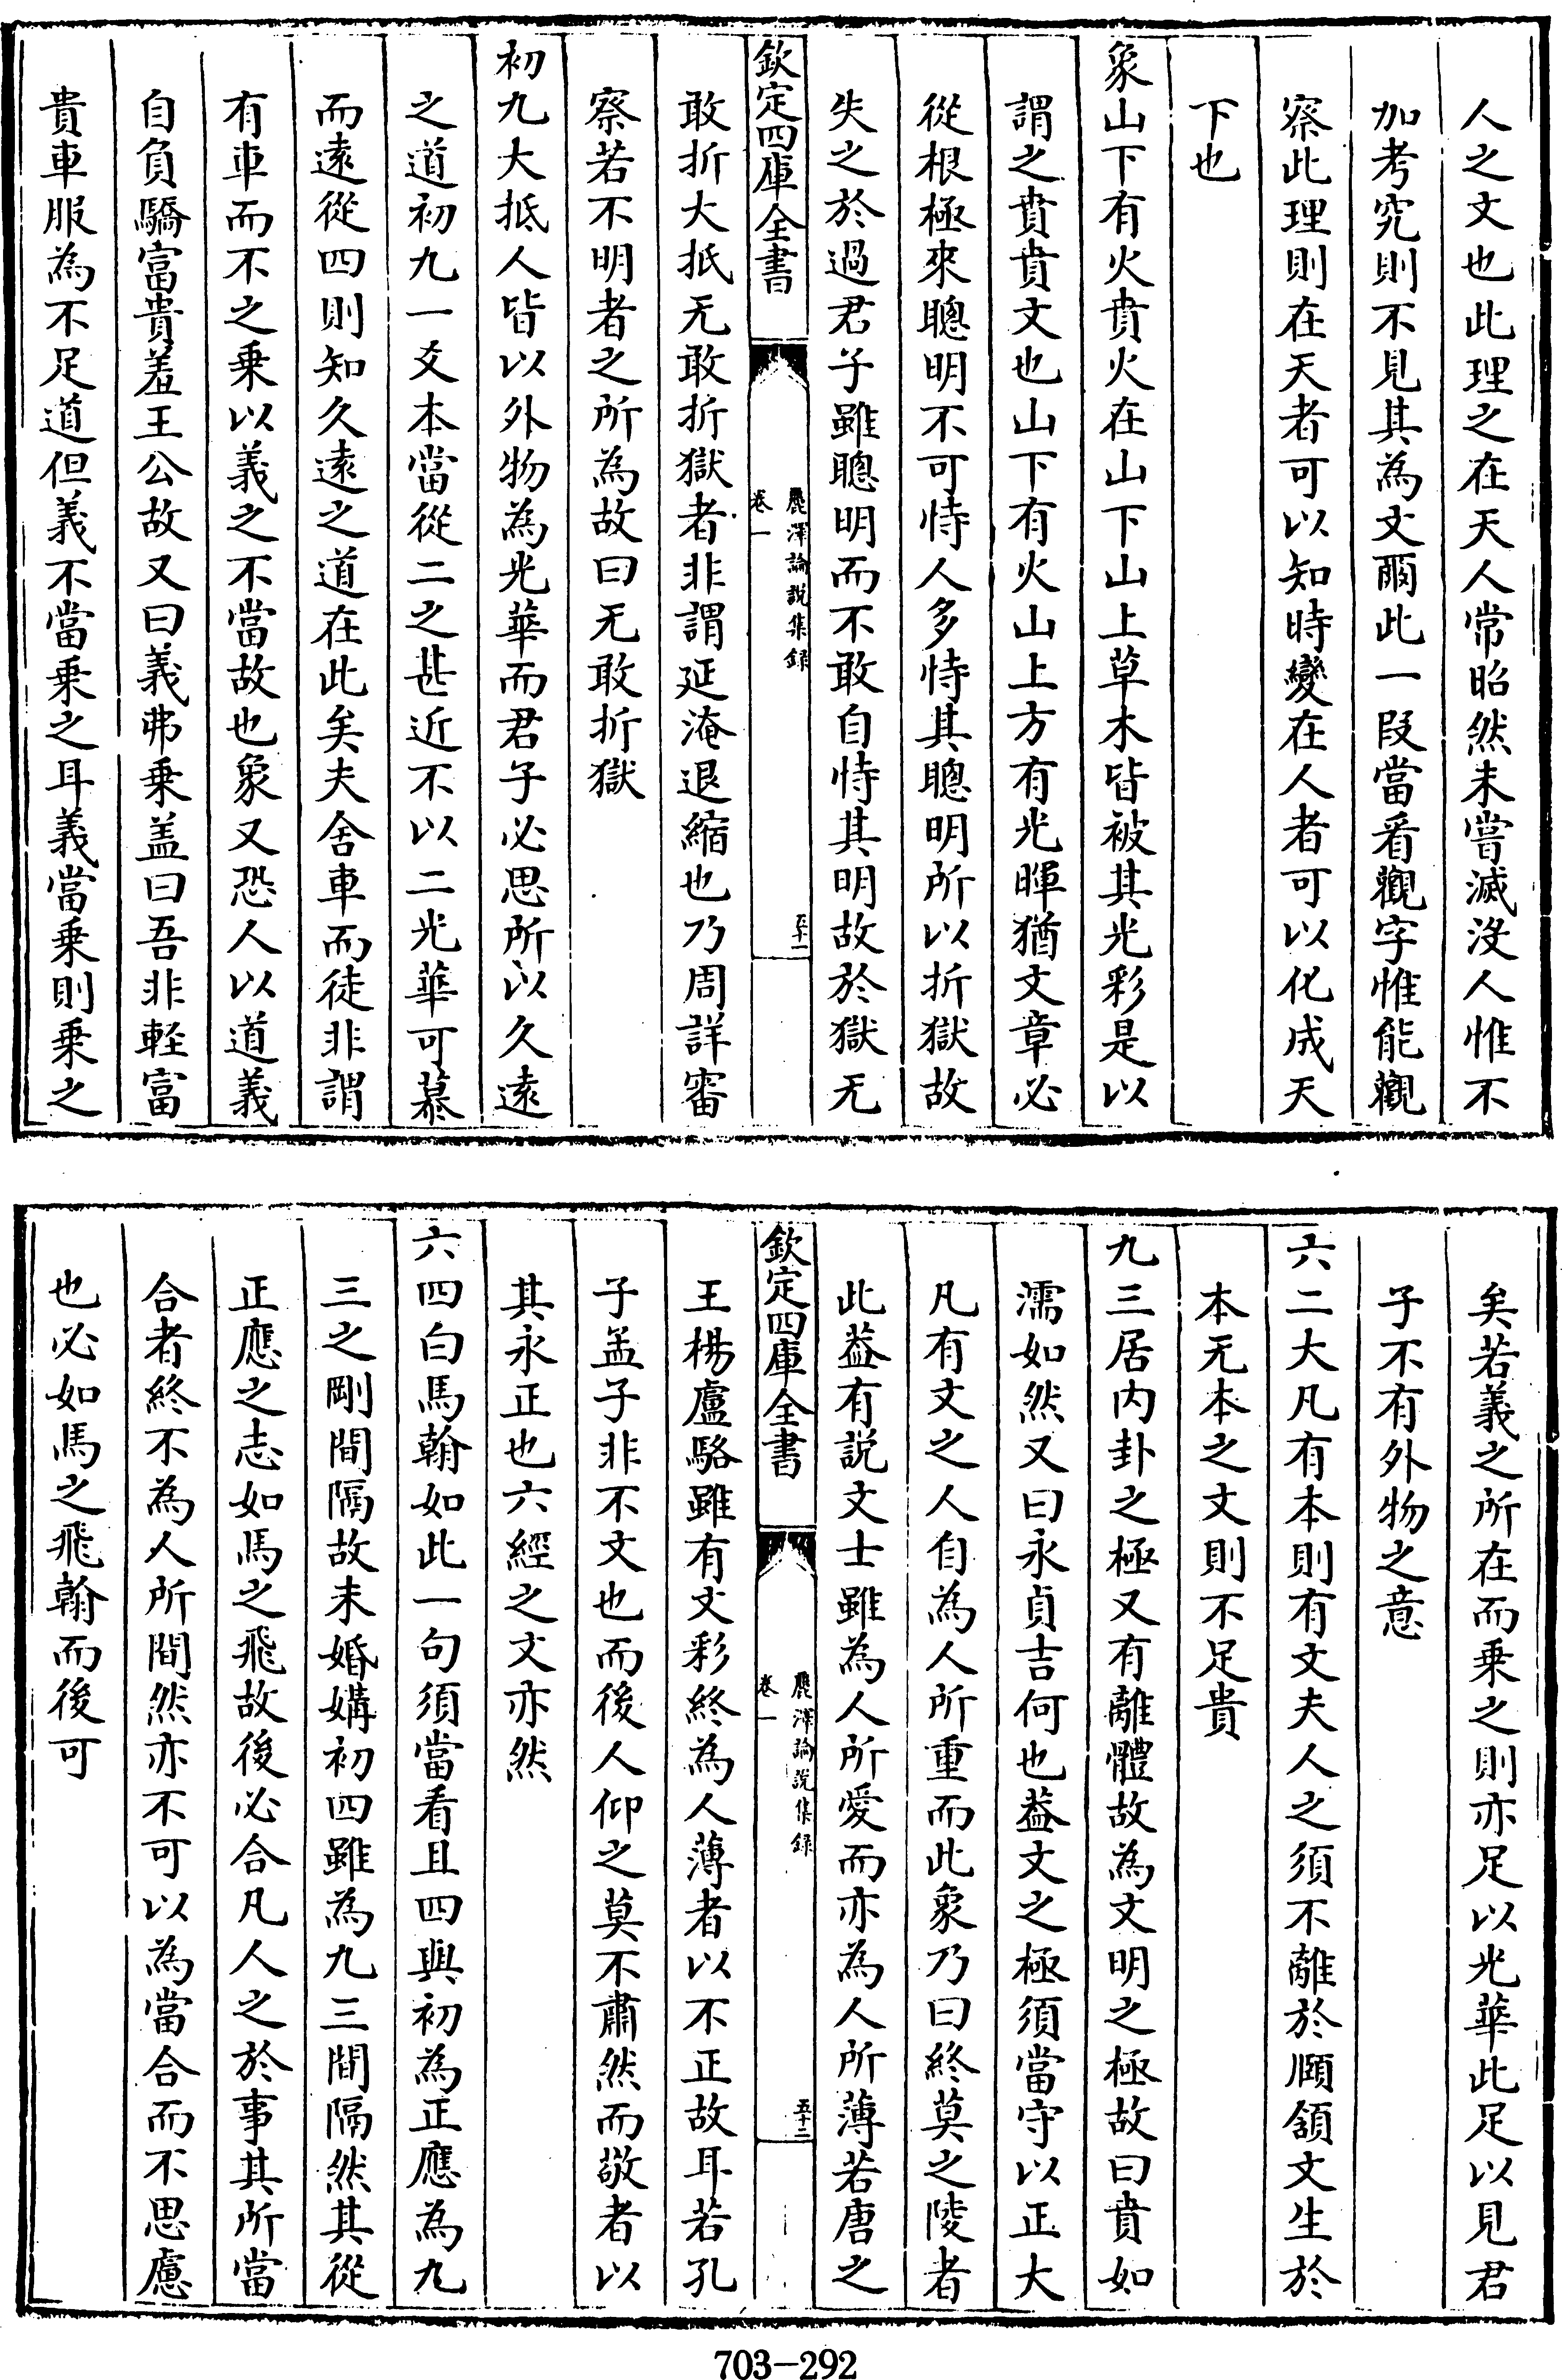 人之文也此理之在天人常昭然未嘗滅沒人惟不
加考究則不見其為文爾此一段當看觀字惟能觀
察此理則在天者可以知時變在人者可以化成天
下也
象山下有火賁火在山下山上草木皆被其光彩是以
謂之賁賁文也山下有火山上方有光暉猶文章必
從根極來聰明不可恃人多恃其聰明所以折獄故
失之於過君子雖聰明而不敢自恃其明故於獄无
欽定四庫全書
麗澤論説集録
卷一
五十一
敢折大抵无敢折獄者非謂延淹退縮也乃周詳審
察若不明者之所為故曰无敢折獄
初九大抵人皆以外物為光華而君子必思所以久遠
之道初九一爻本當從二之甚近不以二光華可慕
而遠從四則知久遠之道在此矣夫舍車而徒非謂
有車而不之乗以義之不當故也象又恐人以道義
自負驕富貴羞王公故又曰義弗乗盖曰吾非輕富
貴車服為不足道但義不當乗之耳義當乗則乗之
矣若義之所在而乗之則亦足以光華此足以見君
子不有外物之意
六二大凡有本則有文夫人之須不離於頤頷文生於
本无本之文則不足貴
九三居内卦之極又有離體故為文明之極故曰賁如
濡如然又曰永貞吉何也葢文之極須當守以正大
凡有文之人自為人所重而此象乃曰終莫之陵者
此葢有説文士雖為人所愛而亦為人所薄若唐之
欽定四庫全書
麗澤論説集録
卷一
五十二
王楊盧駱雖有文彩終為人薄者以不正故耳若孔
子孟子非不文也而後人仰之莫不肅然而敬者以
其永正也六經之文亦然
六四白馬翰如此一句須當看且四與初為正應為九
三之剛間隔故未婚媾初四雖為九三間隔然其從
正應之志如馬之飛故後必合凡人之於事其所當
合者終不為人所間然亦不可以為當合而不思慮
也必如馬之飛翰而後可
703-292